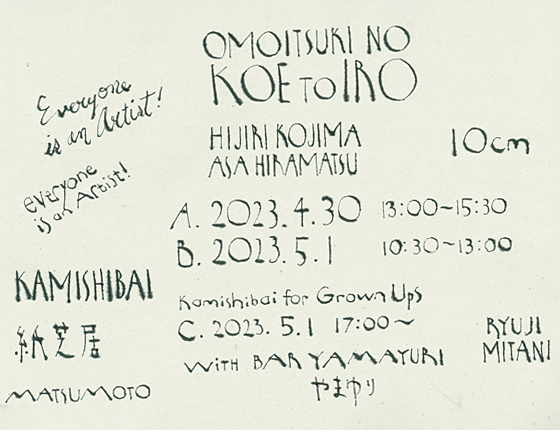 OMOITSUKI NO
KOE TO IRO
Everyone
is an Artist!
HIJIRI KOJIMA
ASA HIRAMATSU
10cm
everyone
is an Artist!
A. 2023.4.30 13:00~15:30
B. 2023.5.1 10:30~13:00
KAMISHIBAI
Kamishibai for Grown Ups
紙芝居
C. 2023.5.1 17:00~
RYUJI
MITANI
WITH BAR YAMAYURI
やまゆり
MATSUMOTO